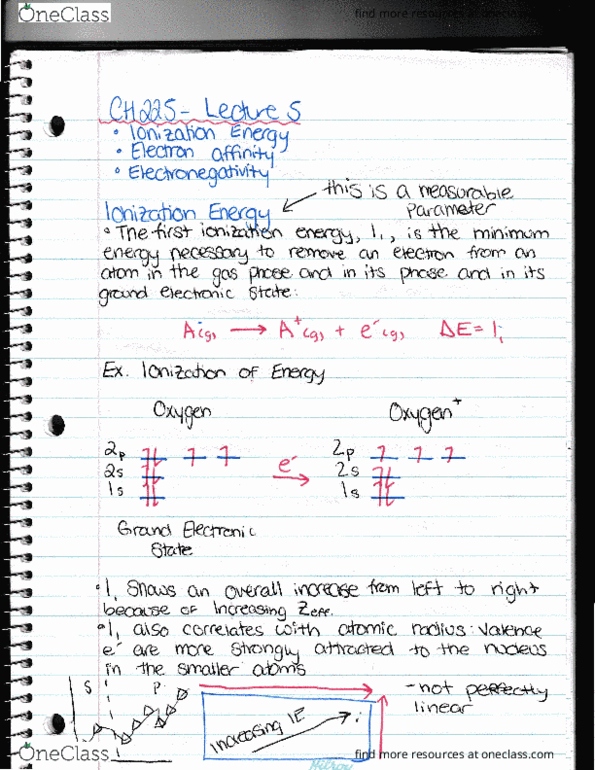 OneClass
find more resources at oneclass.com
CH225 - Lecture 5
• Ionization Energy
• Electron affinity
• Electronegativity
this is a measurable
parameter
Ionization Energy
• The first ionization energy, I₁, is the minimum
energy necessary to remove an electron from an
atom in the gas phase and in its phase and in its
ground electronic state:
A(g) → A⁺(g) + e⁻(g) ΔE = I₁
Ex. Ionization of Energy
Oxygen Oxygen⁺
2p 2p
2s e⁻ 2s
1s 1s
Ground Electronic
State
• I₁ shows an overall increase from left to right
because of increasing Zeff.
• I₁ also correlates with atomic radius: valence
e⁻ are more strongly attracted to the nucleus
in the smaller atoms
S P
- not perfectly
linear
Increasing IE
Hilroy
OneClass
find more resources at oneclass.com